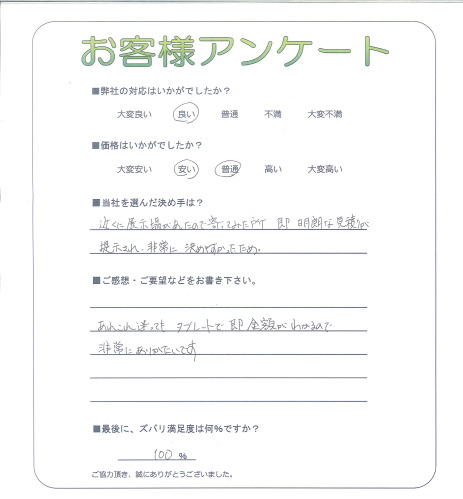 お客様アンケート
■弊社の対応はいかがでしたか？
大変良い 良い 普通 不満 大変不満
■価格はいかがでしたか？
大変安い 安い 普通 高い 大変高い
■当社を選んだ決め手は？
近くに展示場があたので寄ってみた所 即 明朗な見積りが
提示され、非常に 決めやすかったため。
■ご感想・ご要望などをお書き下さい。
あれこれ迷っても タブレートで 即 金額が わかるので
非常にありがたいです
■最後に、ズバリ満足度は何％ですか？
100 %
ご協力頂き、誠にありがとうございました。